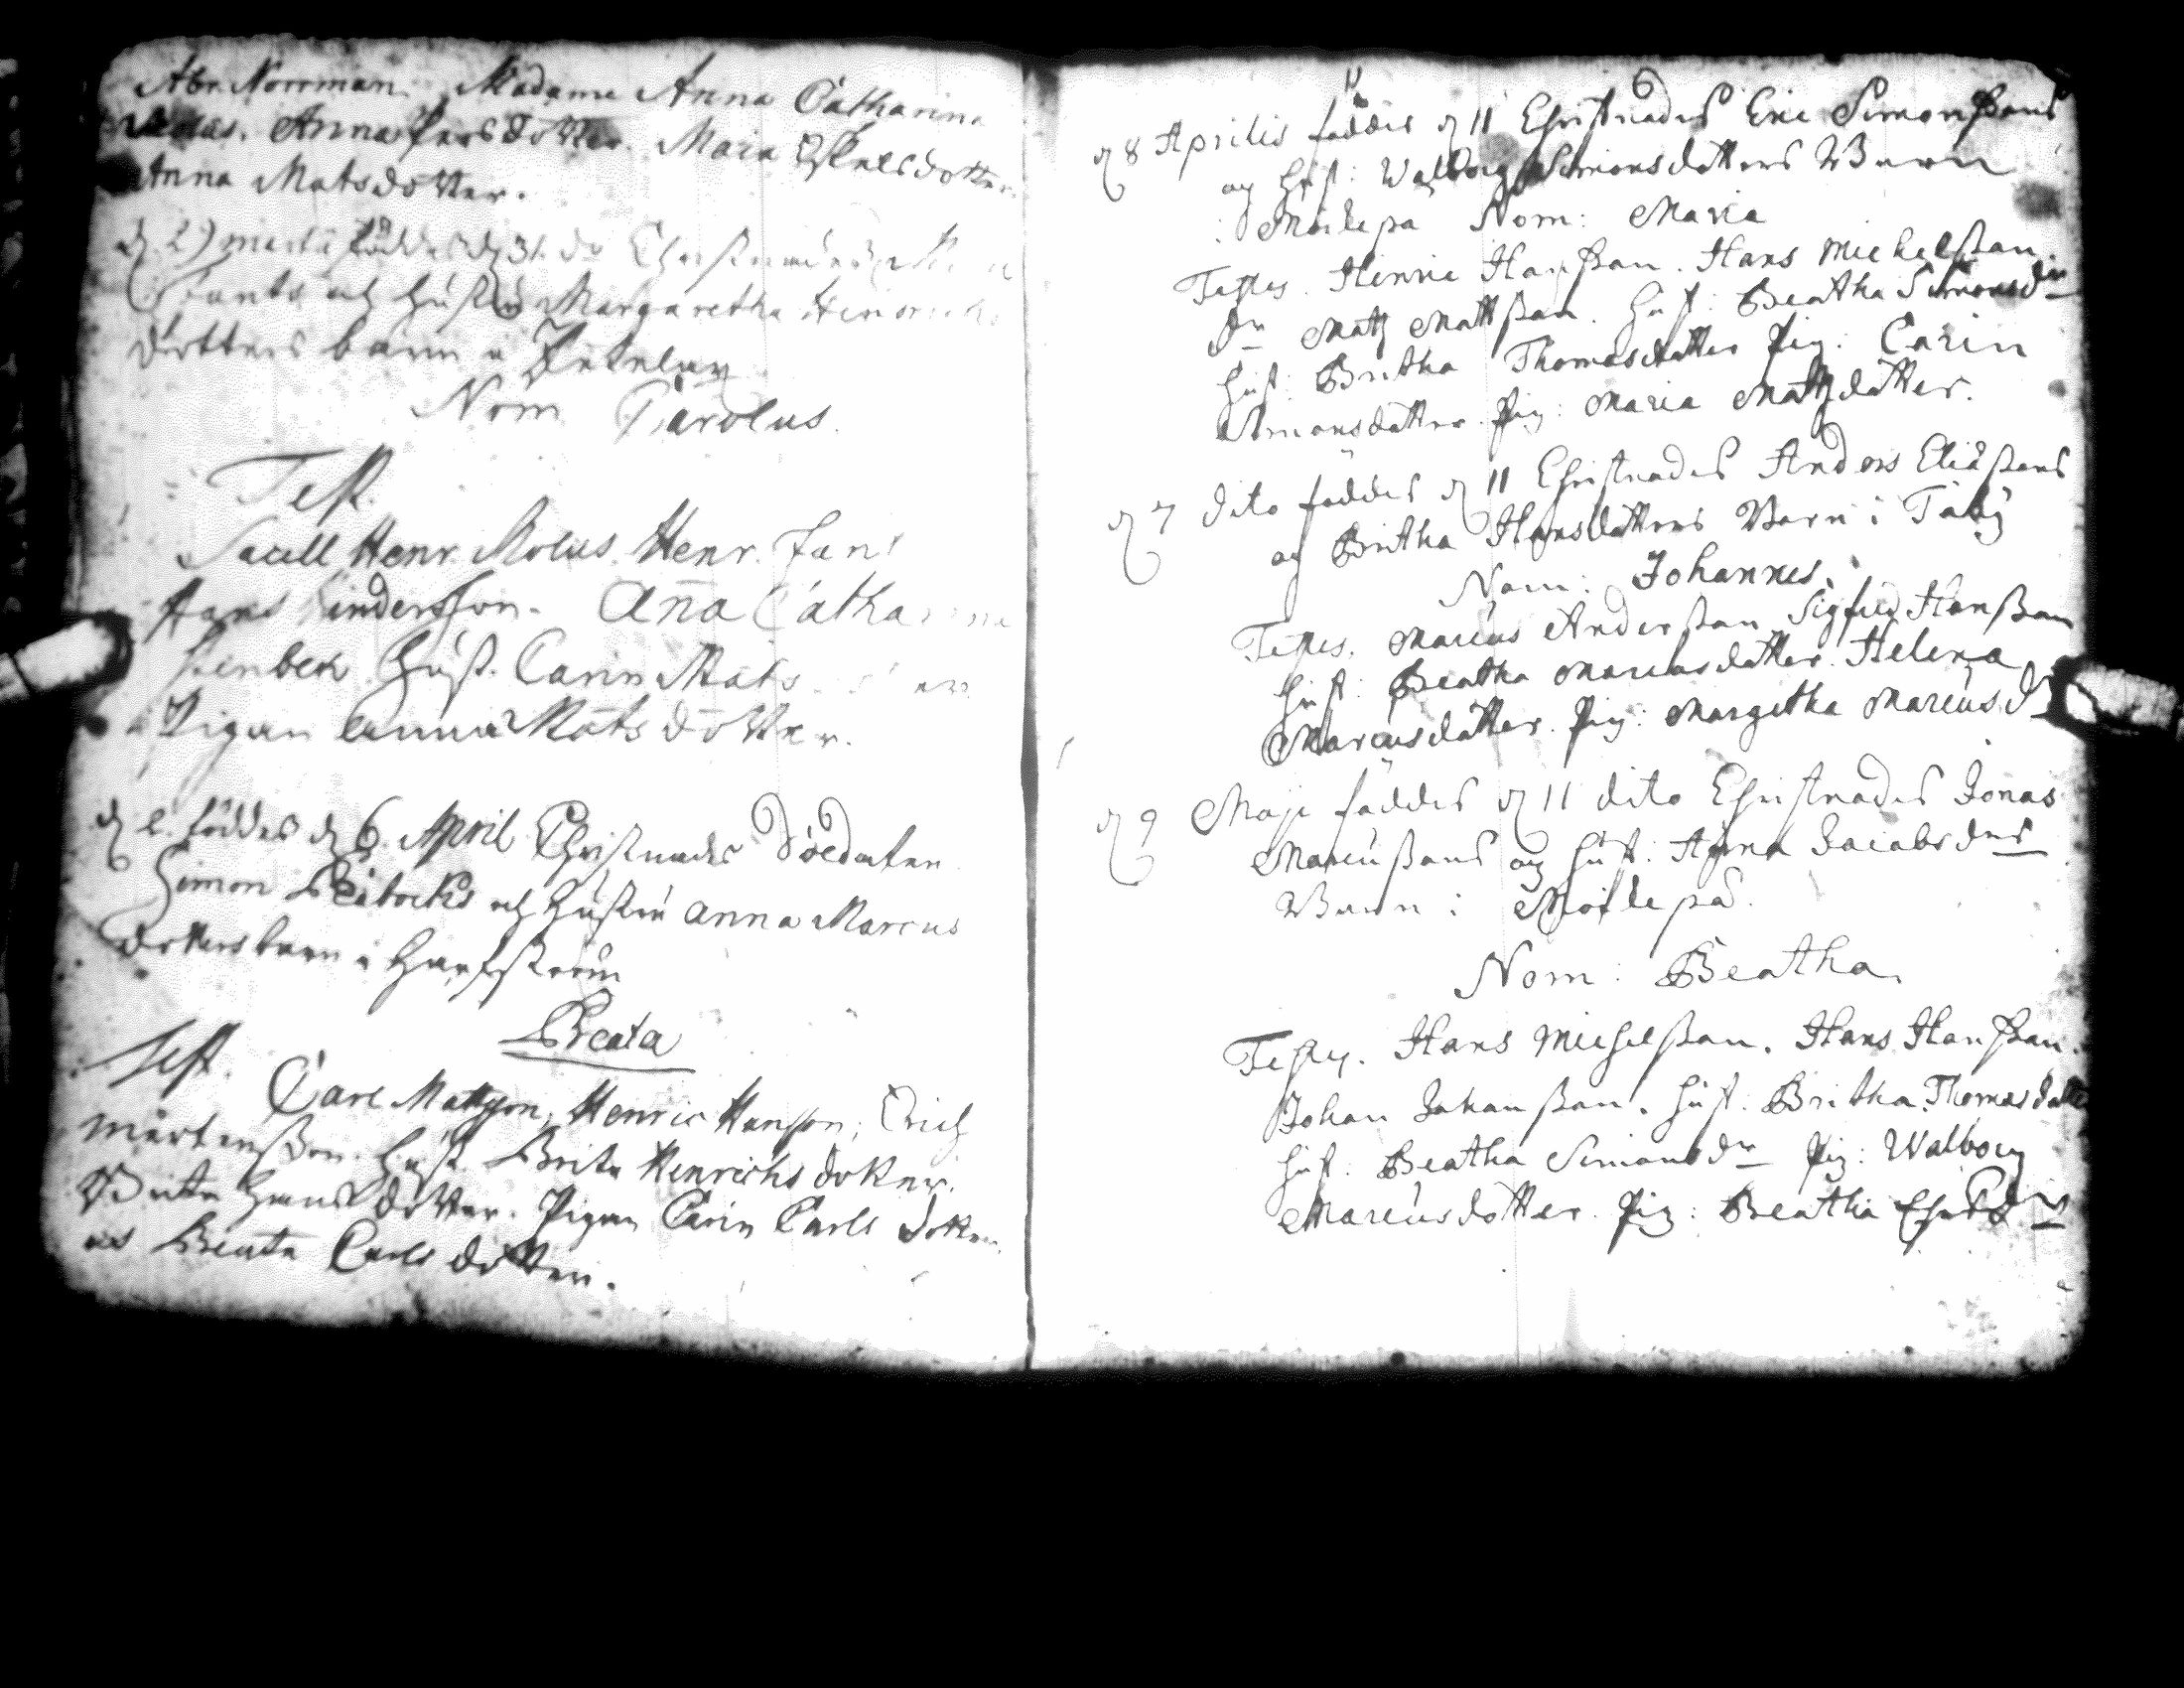 Abr. Norrman. Madame Anna Catharina
Anna Persdotter. Maria Eskelsdotter
Anna Matsdotter.
d. 29 martii föddes d. 31. do Christnades
Fants och hustru Margaretha Henrichs
dotters barn i
Nom Carolus.
Test.
Sacell Henr. Molus. Henr. Fant
Hans Lindersson. Aña Catharina
hust. Carin Mats
Pigan Anna Matsdotter.
d. 2. föddes d. 6. April Christnades Soldaten
Simon och hustru Anna Marcus
dotters barn i
Beata
Test. Carl Matsson, Henric Hansson, Erich
Mårtensson. Hust. Brita Henrichsdotter.
Brita Hansdotter. Pigan Carin Carls dotter
Beata Carlsdotter.
d 8 Aprilis föddes d 11 Christnades Eric Simonßons
og Hust: Walborg Simonsdotters Barn
i Moilepå Nom: Maria
Testes. Henric Hanßon. Hans Michelßon.
Matz Mattßon. Hust: Beatha Simonsdr
Hust: Britha Thomasdotter Pig: Carin
Simonsdotter. Pig: Maria Matzdotter.
d 7 dito föddes d 11 Christnades Anders Eliäßons
og Britha Hansdotters Barn i Täby
Nom: Johannes.
Testes. Marcus Anderßon Sigfred Hanßon
Hust: Beatha Marcusdotter. Helena
Marcusdotter. Pig: Margetha Marcusd
d 9 Maji föddes d 11 dito Christnades Jonas
Marcußons og Hust: Anna Jacobsdrs
Barn i Moilepå.
Nom: Beatha.
Testes. Hans Michelßon. Hans Hanßon.
Johan Johanßon. Hust: Britha Thomasdotter
Hust: Beatha Simonsdr Pig: Walborg
Marcusdotter. Pig: Beatha